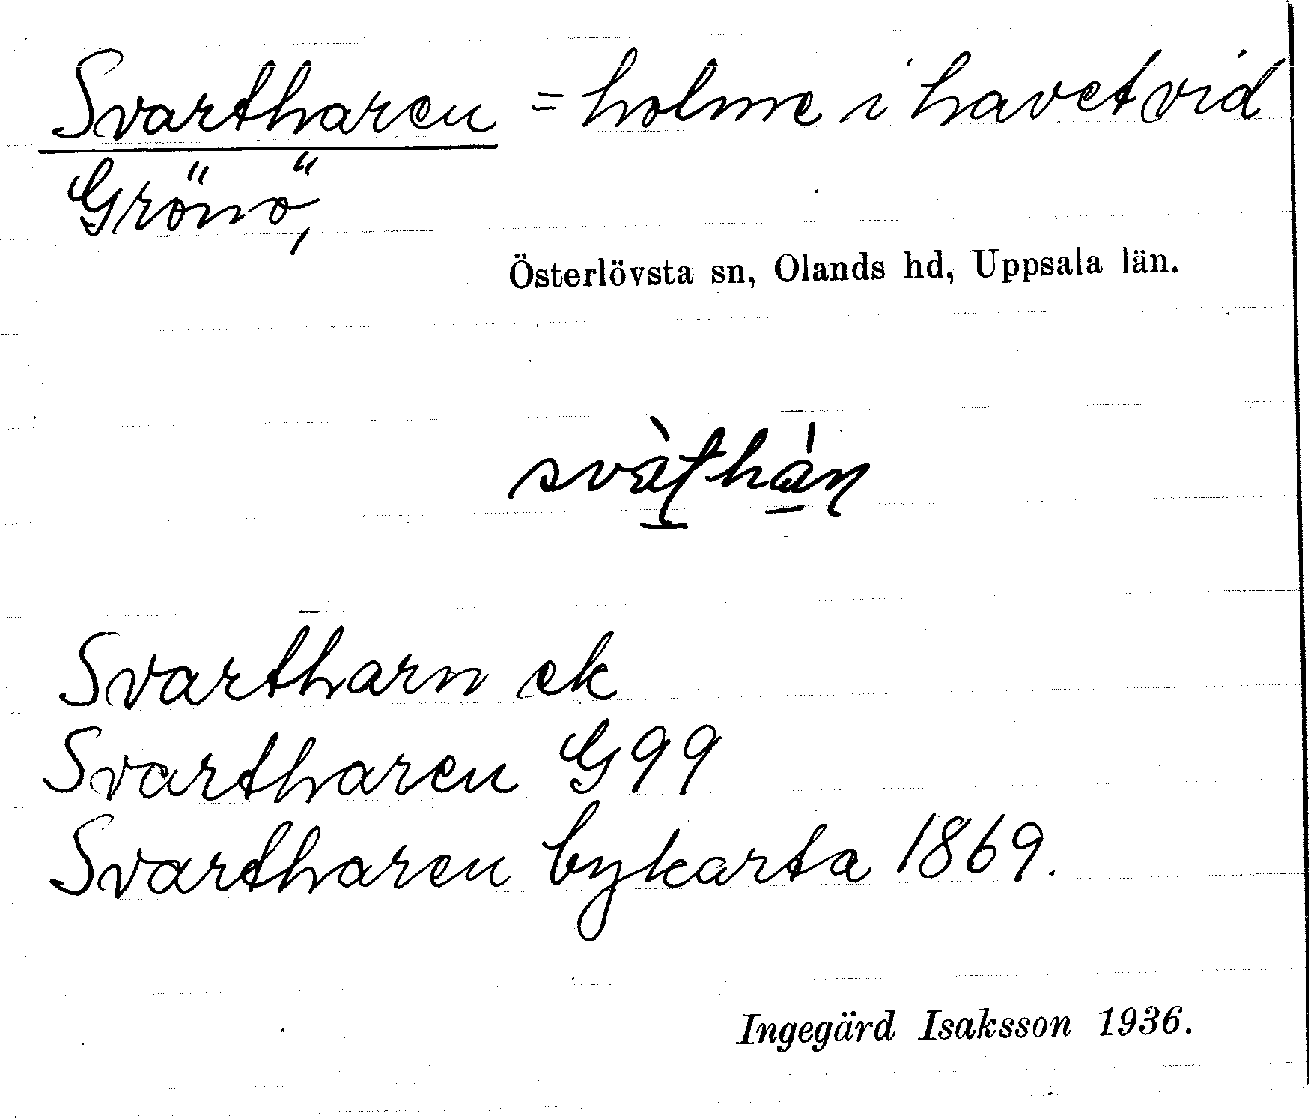 Svartharen = holme i havet vid
Grönö,
Österlövsta sn, Olands hd, Uppsala län.
svàţhán
Svartharn ek
Svartharen G99
Svartharen bykarta 1869.
Ingegärd Isaksson 1936.